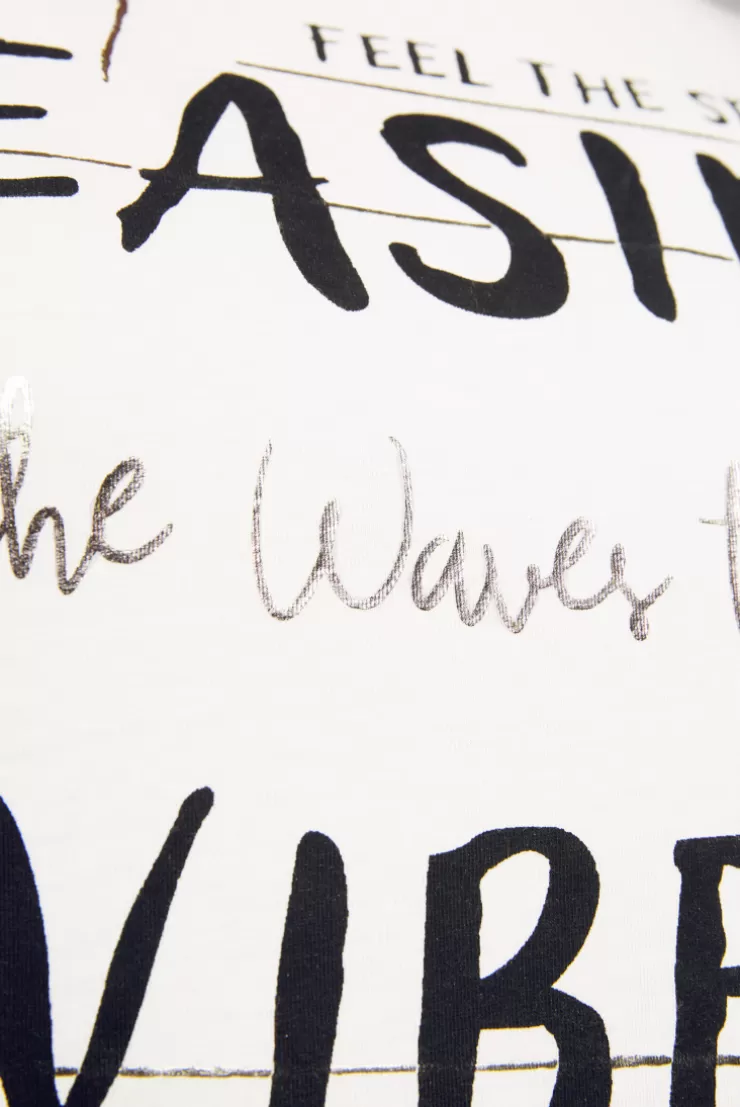 FEEL THE
EASI
the Waves
VIBE